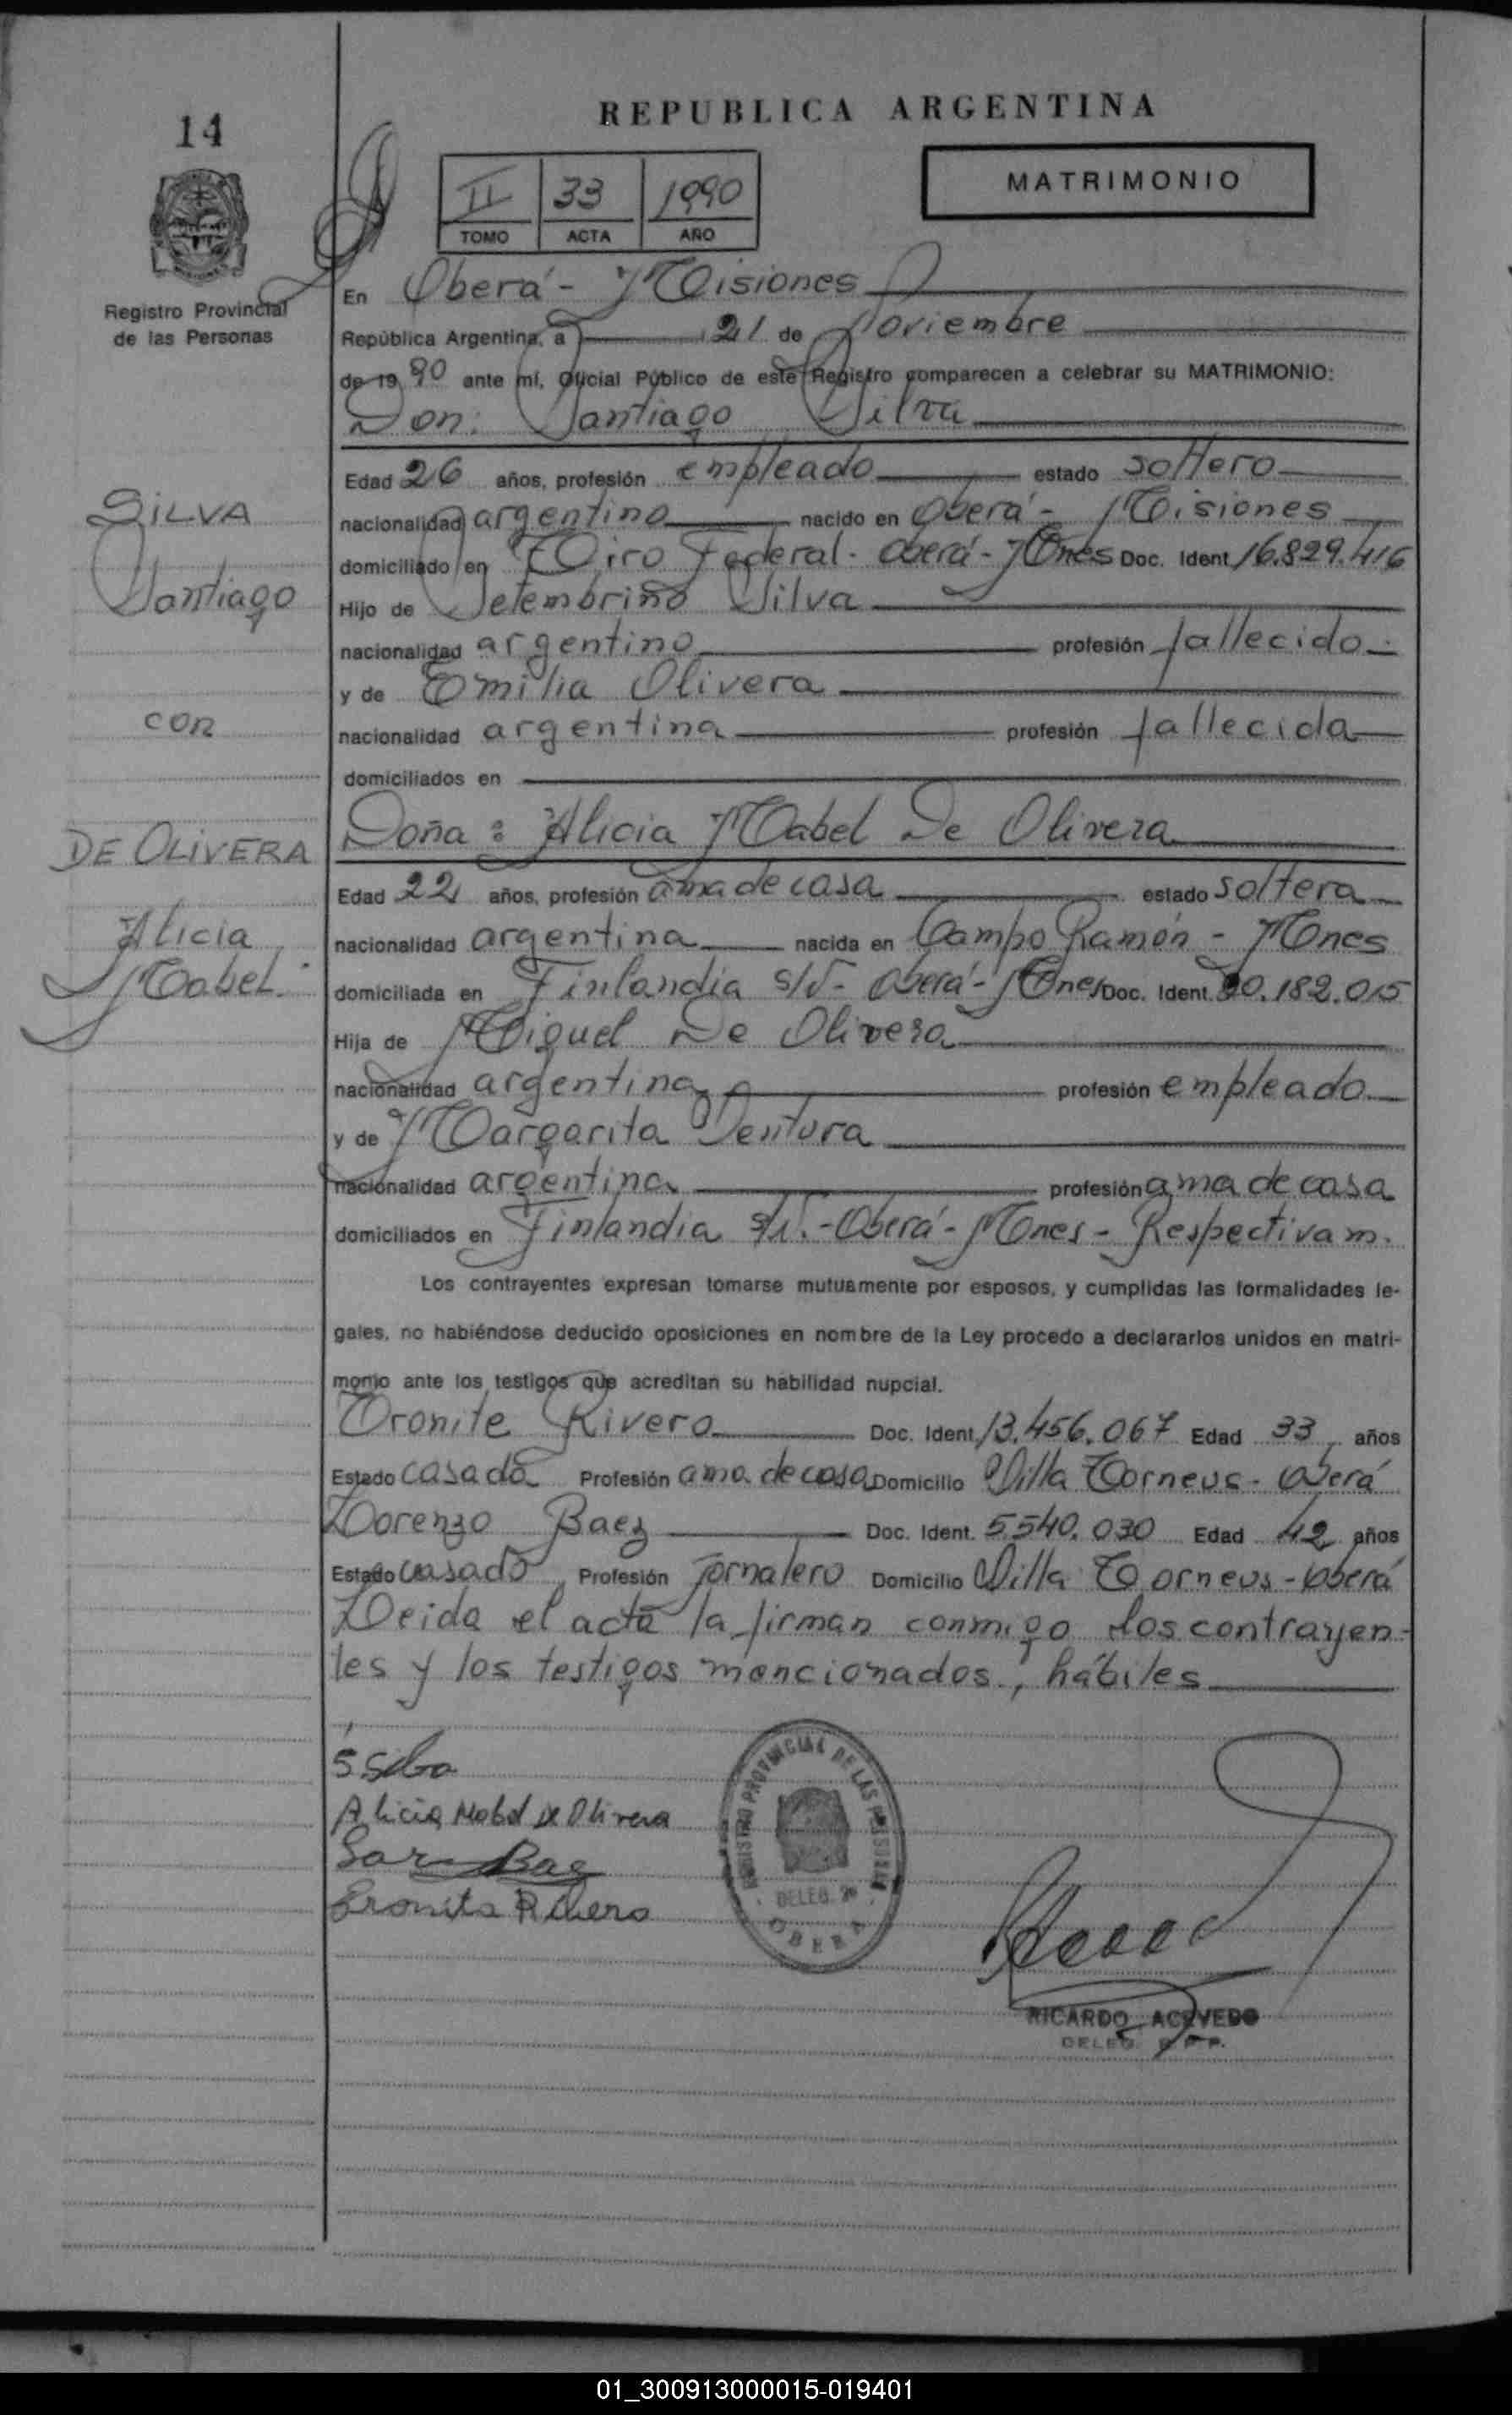 REPUBLICA ARGENTINA
14
II 33 1990
TOMO ACTA AÑO
MATRIMONIO
Registro Provincial
de las Personas
En Oberá - Misiones
República Argentina, a 21 de Noviembre
de 19 90 ante mí, Oficial Público de este Registro comparecen a celebrar su MATRIMONIO:
Don: Santiago Silva
Edad 26 años, profesión empleado estado soltero
SILVA
nacionalidad argentino nacido en Oberá - Misiones
domiciliado en Tiro Federal - Oberá - Mnes Doc. Ident 16.829.416
Santiago
Hijo de Setembrino Silva
nacionalidad argentino profesión fallecido
y de Emilia Olivera
con
nacionalidad argentina profesión fallecida
domiciliados en
Doña: Alicia Mabel De Olivera
DE OLIVERA
Edad 22 años, profesión ama de casa estado soltera
Alicia
nacionalidad argentina nacida en Campo Ramón - Mnes
Mabel.
domiciliada en Finlandia s/n - Oberá - Mnes Doc. Ident. 20.182.015
Hija de Miguel De Olivera
nacionalidad argentina profesión empleado
y de Margarita Ventura
nacionalidad argentina profesión ama de casa
domiciliados en Finlandia s/n. - Oberá - Mnes - Respectivam.
Los contrayentes expresan tomarse mutuamente por esposos, y cumplidas las formalidades le-
gales, no habiéndose deducido oposiciones en nombre de la Ley procedo a declararlos unidos en matri-
monio ante los testigos que acreditan su habilidad nupcial.
Eronite Rivero Doc. Ident. 13.456.067 Edad 33 años
Estado casada Profesión ama de casa Domicilio Villa Torneus - Oberá
Lorenzo Baez Doc. Ident. 5.540.030 Edad 42 años
Estado casado Profesión jornalero Domicilio Villa Torneus - Oberá
Leida el acta la firman conmigo los contrayen-
tes y los testigos mencionados, hábiles
S Silva
Alicia Mabel De Olivera
Baez
Eronita Rivero
REGISTRO PROVINCIAL DE LAS PERSONAS
DELEG.
OBERA
RICARDO ACEVEDO
DELEG. R.P.P.
01_300913000015-019401